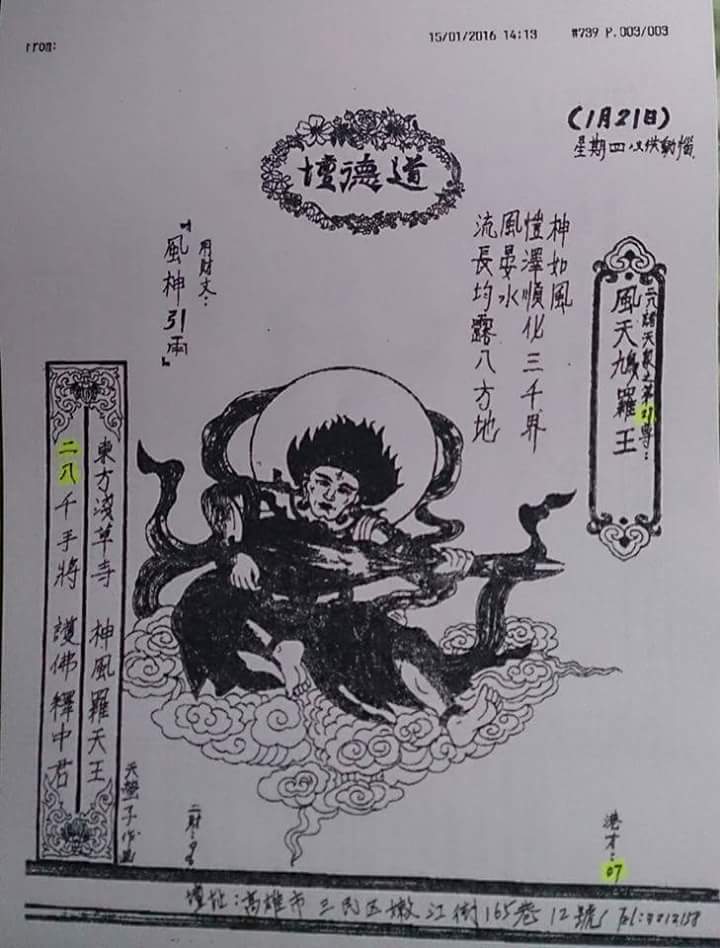 from:
15/01/2016 14:13 #739 P.003/003
(1月21日)
星期四
道德壇
神如風
愷澤順化三千界
風晏水
流長均露八方地
二八諸天眾之第21尊：
風天鳩羅王
用財文：
『風神引雨』
東方淺草寺 神風羅天王
二八千手將 護佛釋中君
港才：07
壇址：高雄市三民區嫩江街165巷12號